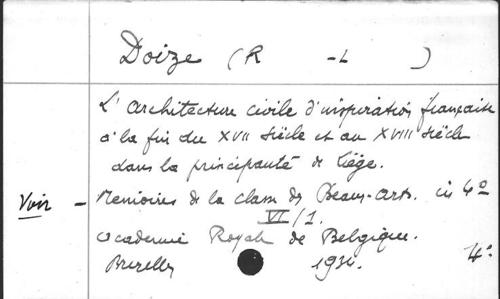 Doize (R -L )
L'architecture civile d'inspiration française
à la fin du XVII siècle et au XVIII siècle
dans la principauté de Liège.
Voir - Memoires de la classe des Beaux-Arts. in 4°
VI/1.
Academie Royale de Belgique.
Bruxelles 1934. 4°